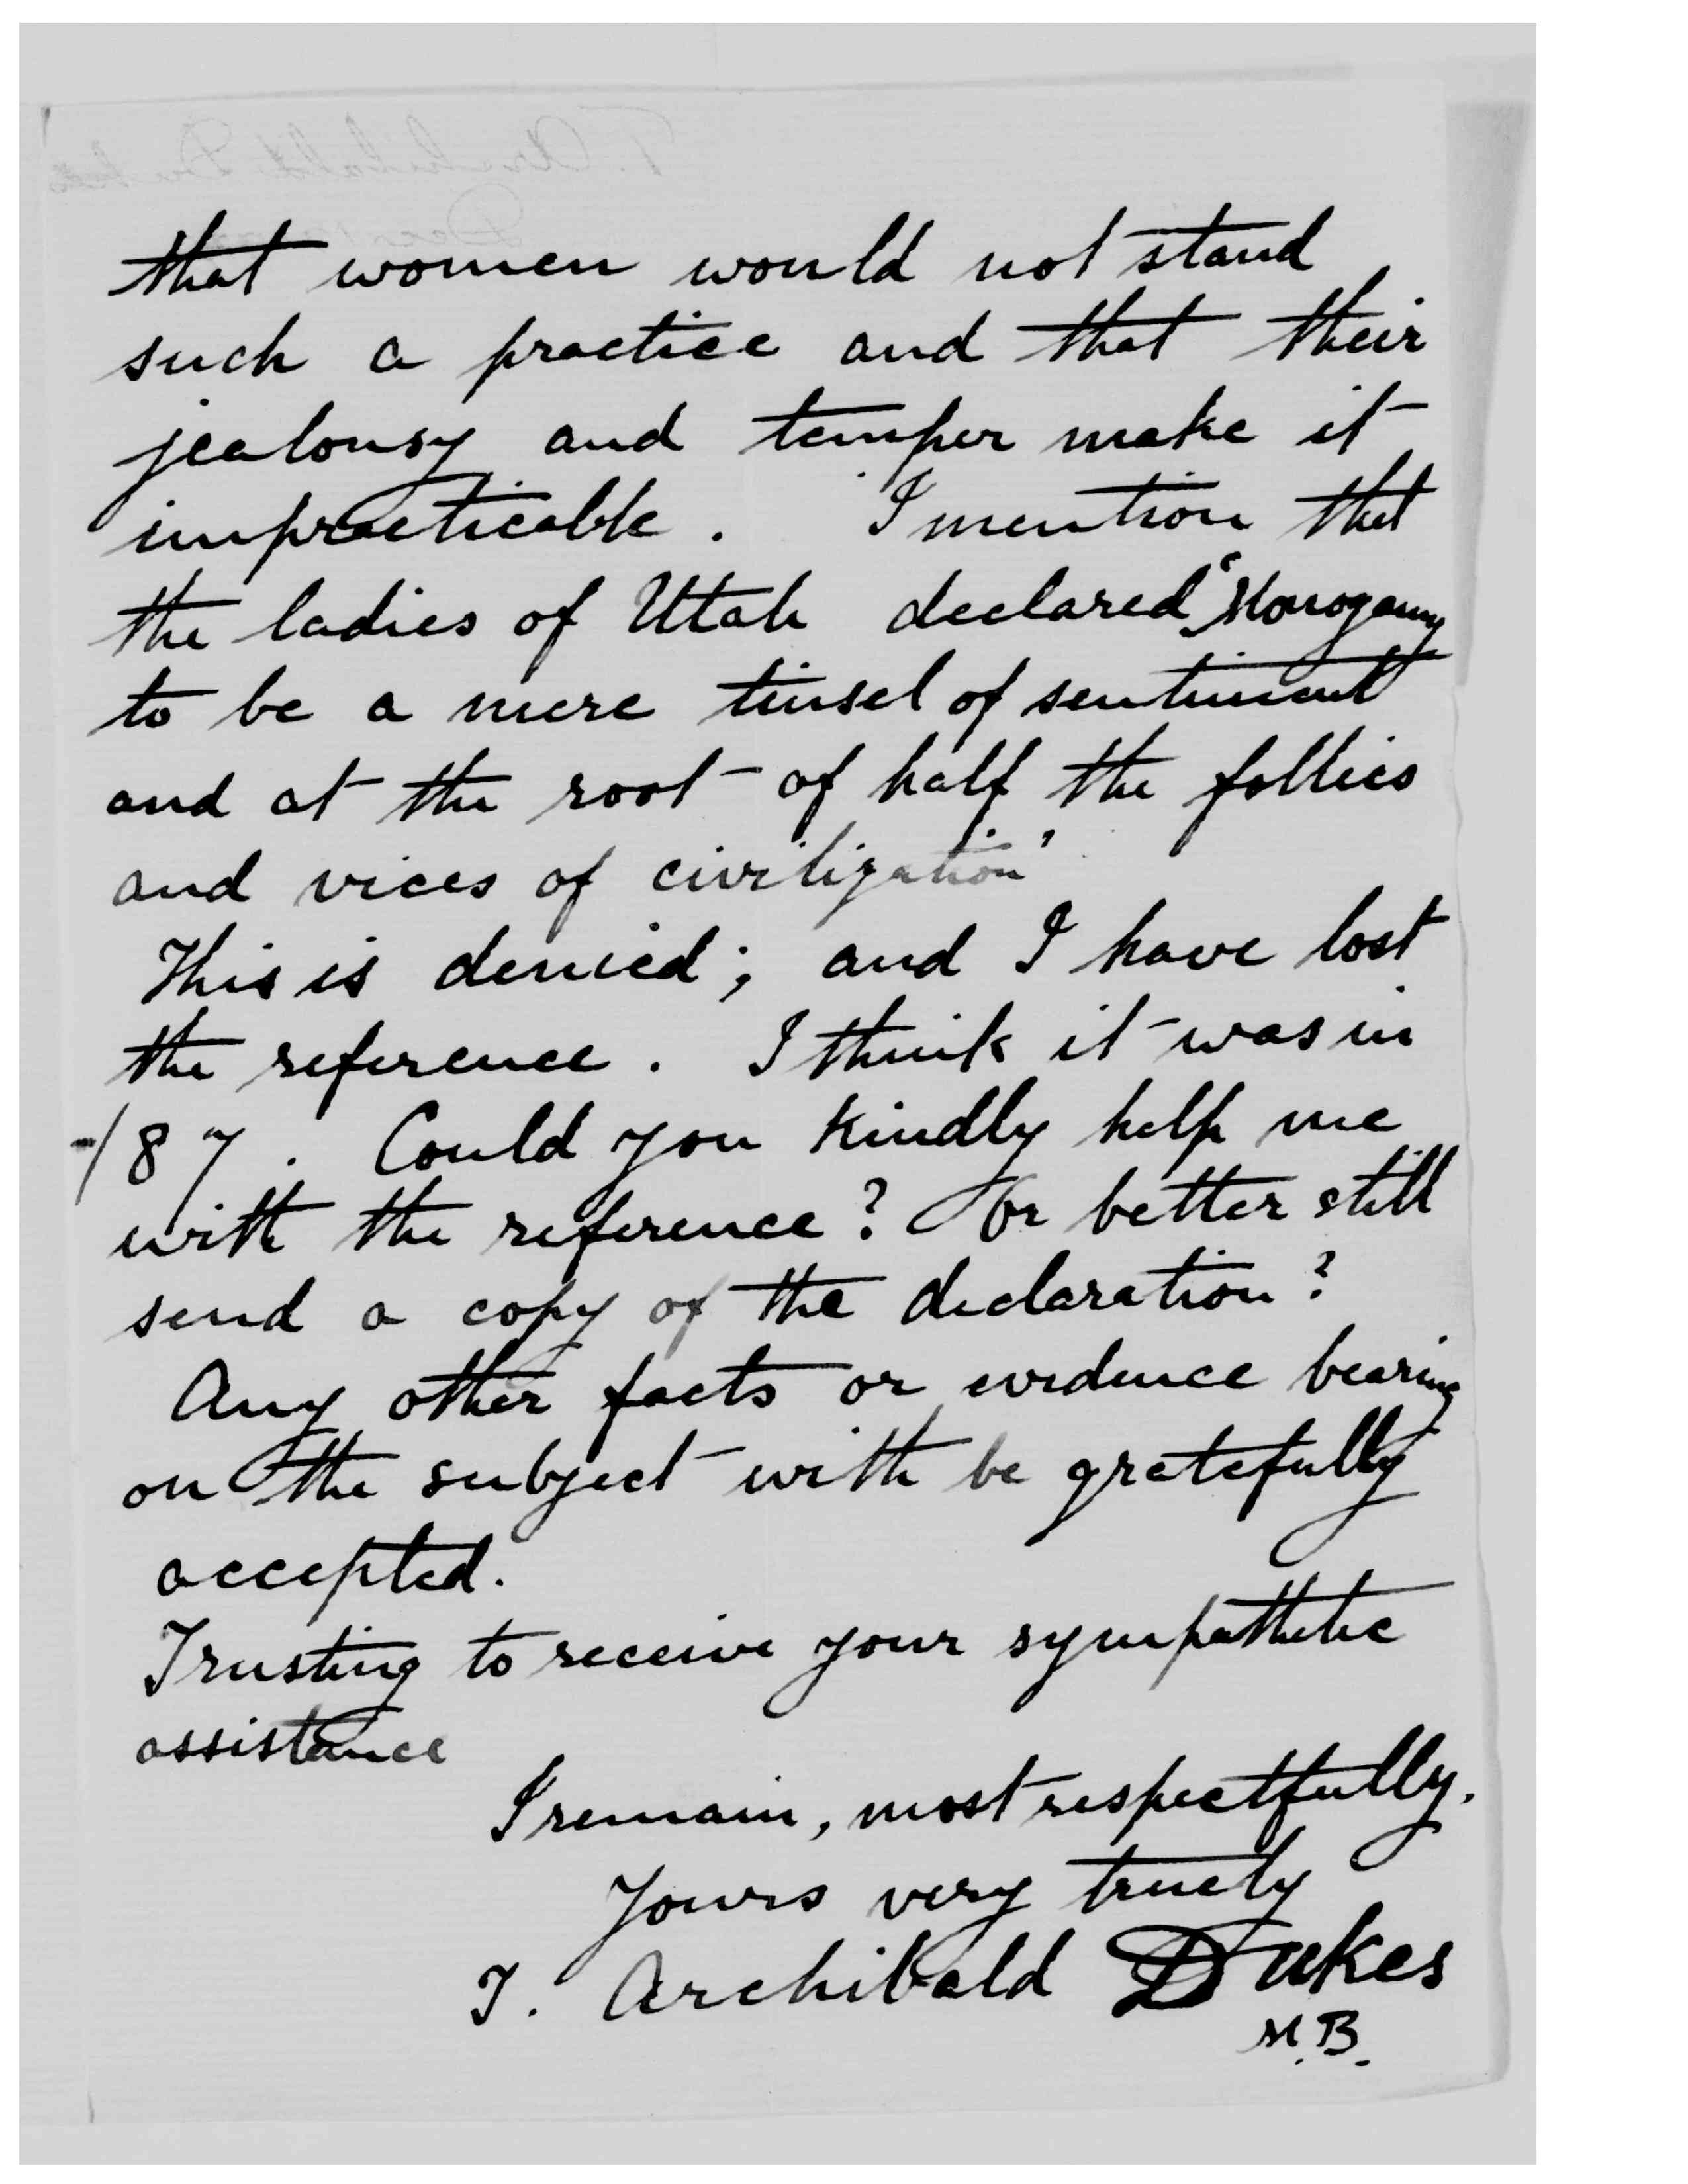 that women would not stand
such a practice and that their
jealousy and temper make it
impracticable. I mention that
the ladies of Utah declared "Monogamy
to be a mere tinsel of sentiment
and at the root of half the follies
and vices of civilization"
This is denied; and I have lost
the reference. I think it was in
-/87. Could you kindly help me
with the reference? Or better still
send a copy of the declaration?
Any other facts or evidence bearing
on the subject with be gratefully
accepted.
Trusting to receive your sympathetic
assistance
I remain, most respectfully.
Yours very truely
T. Archibald Dukes
M.B.